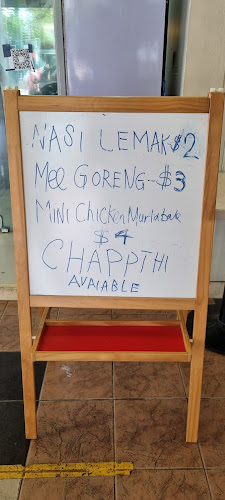 NASI LEMAK $2
Mee GORENG--$3
MINI ChicKen Murtabak
$4
CHAPPTHI
AVAIABLE